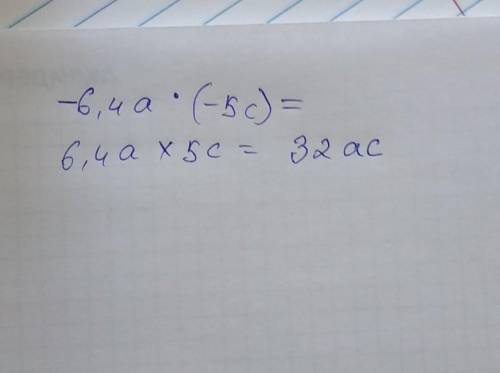 -6,4a · (-5c) =
6,4a × 5c = 32ac